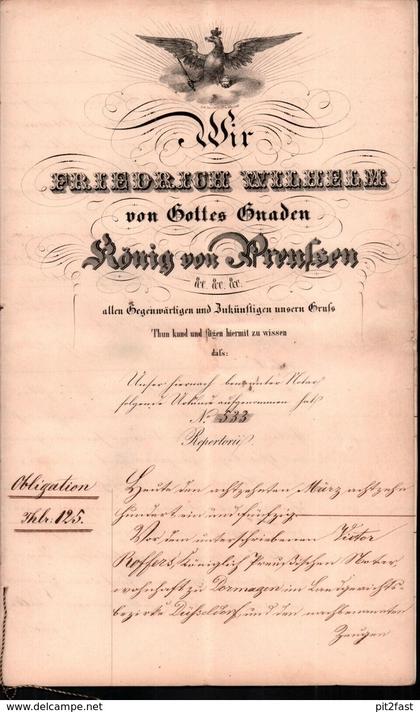 Wir
FRIEDRICH WILHELM
von Gottes Gnaden
König von Preußen
&c. &c. &c.
allen Gegenwärtigen und Zukünftigen unsern Gruß
Thun kund und fügen hiermit zu wissen
daß:
Unser hiernach benannter Notar
folgende Urkunde aufgenommen hat.
No. 533
Repertorii.
Obligation
Thlr. 125.
Heute den achtzehnten März achtzehn
hundert ein und fünfzig
Vor dem unterschriebenen Victor
Roffers, Königlich Preußischen Notar
wohnhaft zu Dormagen im Landgerichts-
bezirke Düsseldorf, und den nachbenannten
Zeugen
www.delcampe.net
pit2fast